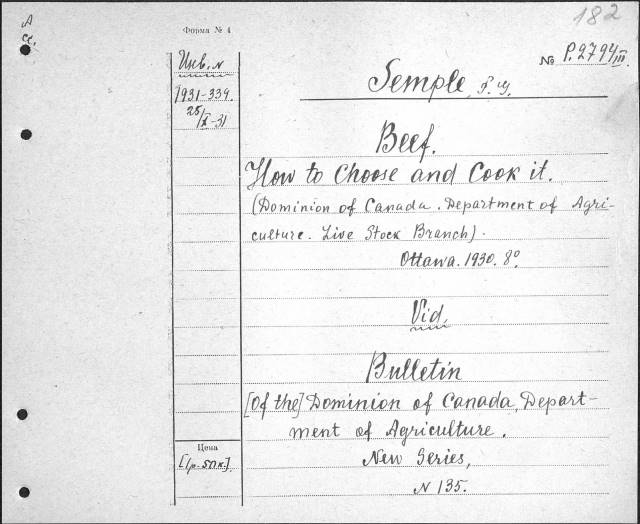 182
Форма № 4
№ P.2794/III.
Инв. №
1931-339.
25/X-31
Semple,
Beef.
How to Choose and Cook it.
(Dominion of Canada. Department of Agri-
culture. Live Stock Branch).
Ottawa. 1930. 8°
Vid.
Bulletin
[of the] Dominion of Canada, Depart-
ment of Agriculture.
New Series,
N 135.
Цена
[1р-50к.]